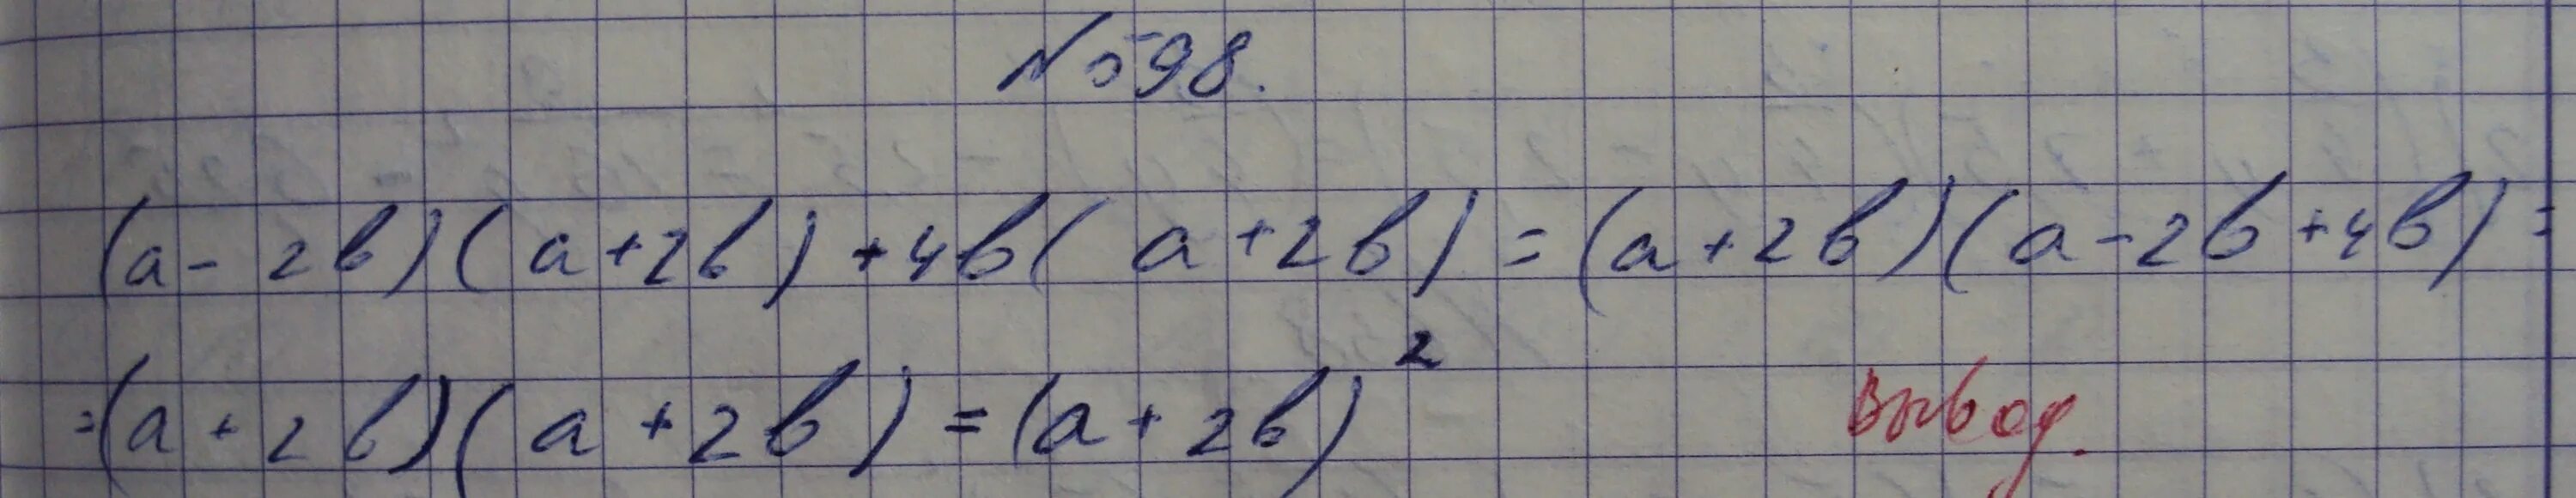 №598.
(a-2b)(a+2b)+4b(a+2b)=(a+2b)(a-2b+4b)=
=(a+2b)(a+2b)=(a+2b)²
вывод.